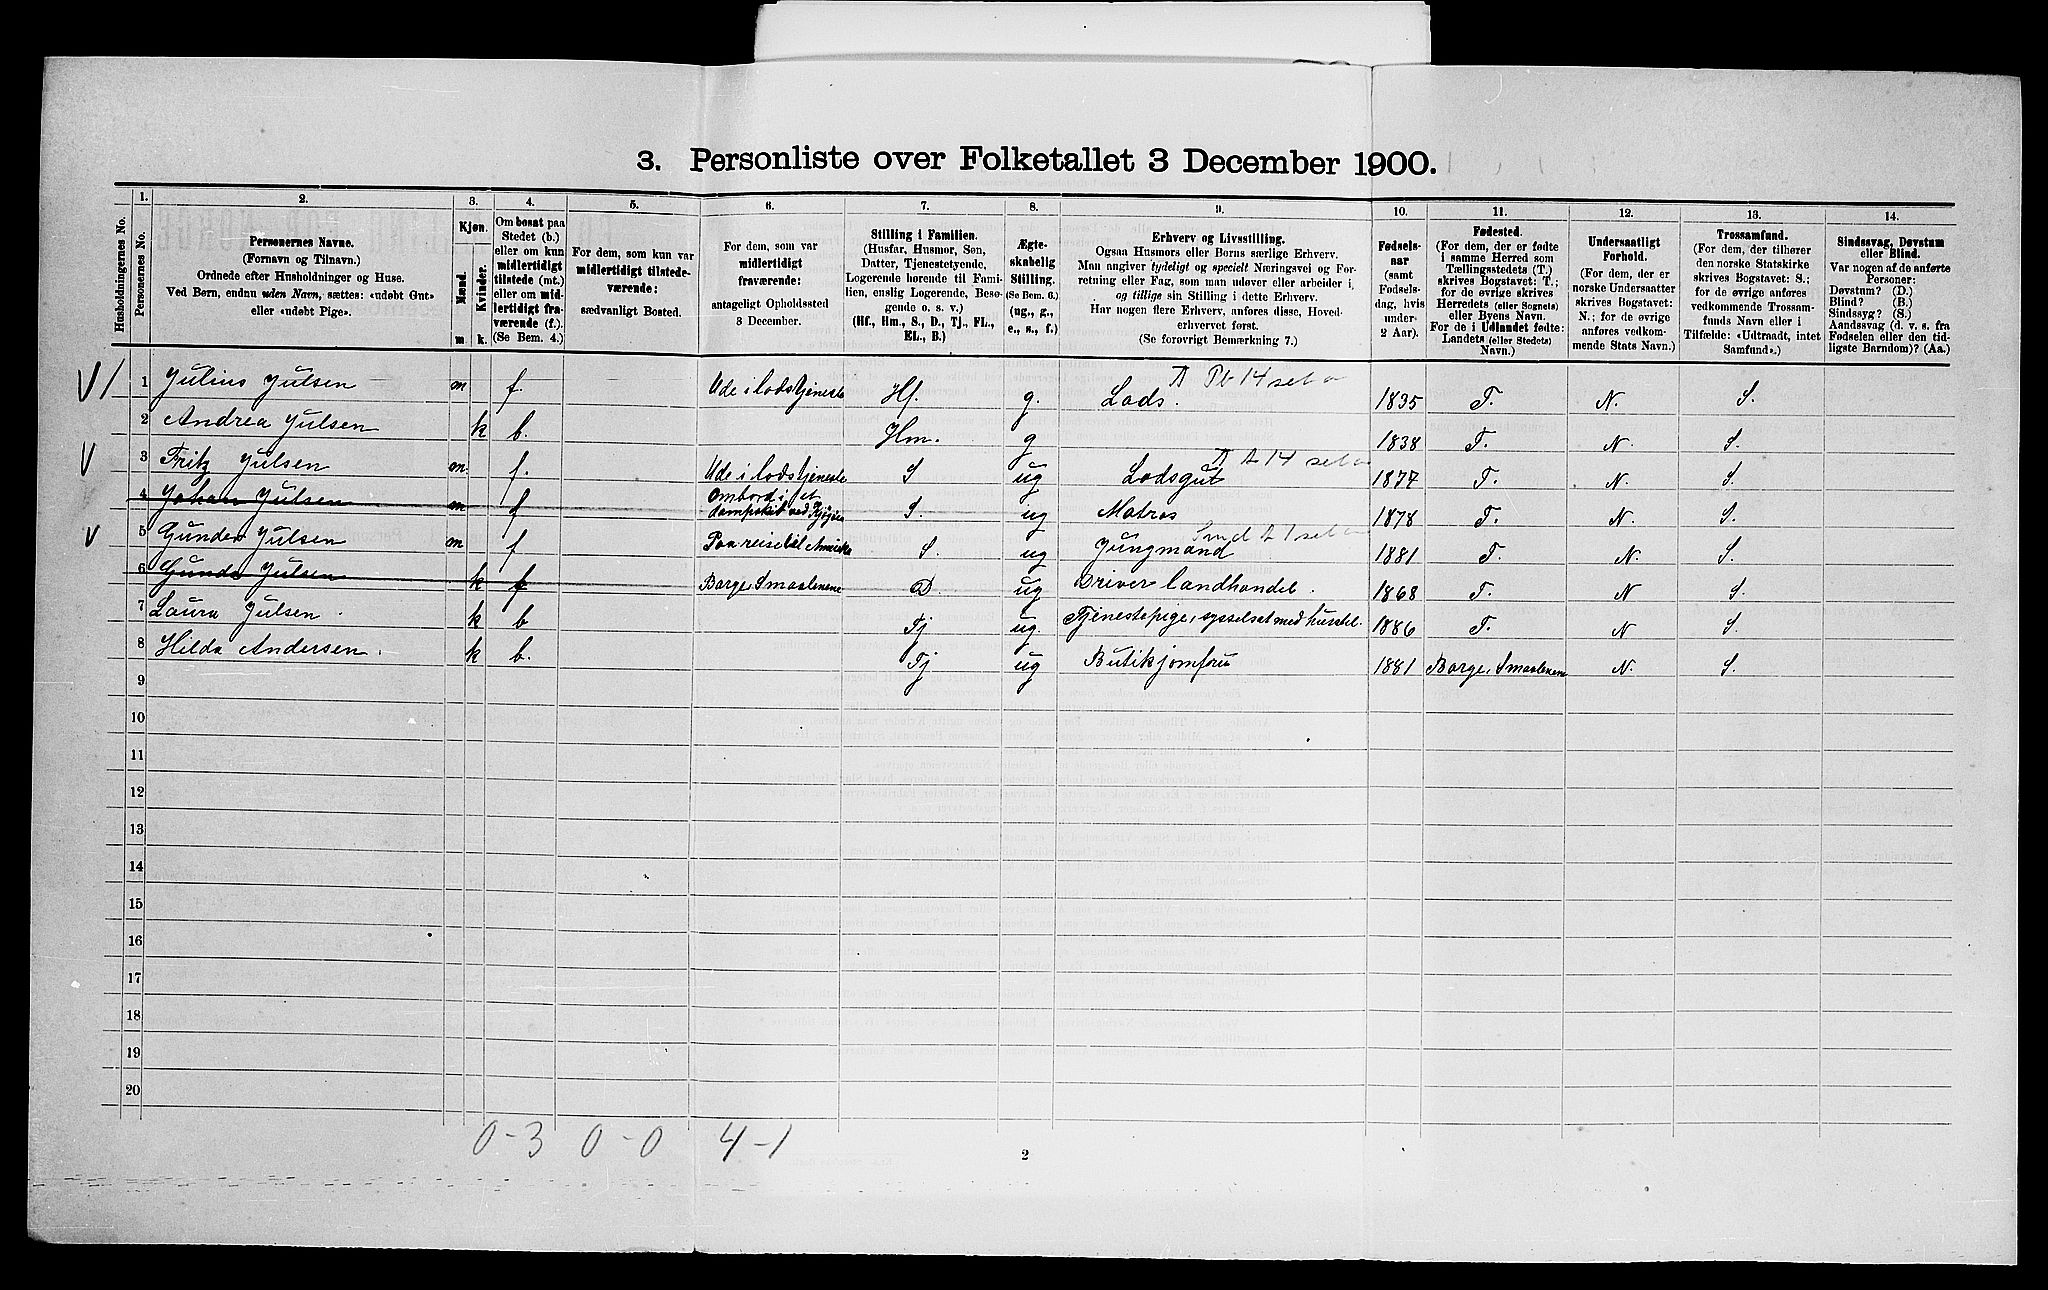 3. Personliste over Folketallet 3 December 1900.
Husholdningernes No.
1. Personernes No.
2. Personernes Navne.
(Fornavn og Tilnavn.)
Ordnede efter Husholdninger og Huse.
Ved Børn, endnu uden Navn, sættes: «udøbt Gut»
eller «udøbt Pige».
3. Kjøn.
Mænd. Kvinder.
m. k.
4. Om bosat paa
Stedet (b.)
eller om kun
midlertidigt
tilstede (mt.)
eller om mid-
lertidigt fra-
værende (f.).
(Se Bem. 4.)
5. For dem, som kun var
midlertidigt tilstede-
værende:
sædvanligt Bosted.
6. For dem, som var
midlertidigt
fraværende:
antageligt Opholdssted
3 December.
7. Stilling i Familien.
(Husfar, Husmor, Søn,
Datter, Tjenestetyende,
Logerende hørende til Fami-
lien, enslig Logerende, Besø-
gende o. s. v.)
(Hf., Hm., S., D., Tj., FL.,
EL., B.)
8. Ægte-
skabelig
Stilling.
(Se Bem. 6.)
(ug., g.,
e., s., f.)
9. Erhverv og Livsstilling.
Ogsaa Husmors eller Børns særlige Erhverv.
Man angiver tydeligt og specielt Næringsvei og For-
retning eller Fag, som man udøver eller arbeider i,
og tillige sin Stilling i dette Erhverv.
Har nogen flere Erhverv, anføres disse, Hoved-
erhvervet først.
(Se forøvrigt Bemærkning 7.)
10. Fødsels-
aar
(samt
Fødsels-
dag, hvis
under
2 Aar).
11. Fødested.
(For dem, der er fødte
i samme Herred som
Tællingsstedets (T.)
skrives Bogstavet: T.;
for de øvrige skrives
Herredets (eller Sognets)
eller Byens Navn.
For de i Udlandet fødte:
Landets (eller Stedets)
Navn.)
12. Undersaatligt
Forhold.
(For dem, der er
norske Undersaatter
skrives Bogstavet:
N.; for de øvrige
anføres vedkom-
mende Stats Navn.)
13. Trossamfund.
(For dem, der tilhører
den norske Statskirke
skrives Bogstavet: S.;
for de øvrige anføres
vedkommende Trossam-
funds Navn eller i
Tilfælde: «Udtraadt, intet
Samfund».)
14. Sindssvag, Døvstum
eller Blind.
Var nogen af de anførte
Personer:
Døvstum? (D.)
Blind? (B.)
Sindssyg? (S.)
Aandssvag (d. v. s. fra
Fødselen eller den tid-
ligste Barndom)? (Aa.)
1 Julius Julsen m f. Ude i lodstjeneste Hf. g. Lods. 1835 T. N. S.
2 Andrea Julsen k b. Hm. g 1838 T. N. S.
3 Fritz Julsen m. f. Ude i lodstjeneste S ug Lodsgut 1877 T. N. S.
4 Johan Julsen m f Ombord i et
dampskib ved S. ug Matros 1878 T. N. S.
5 Gunder Julsen m f Paa reise til S. ug Jungmand 1881 T. N. S.
6 Gunda Julsen k f Borge, Smaalenene D. ug Driver landhandel. 1868 T. N S.
7 Laura Julsen. k b Tj ug. Tjenestepige, sysselsat med husstel. 1886 T. N S.
8 Hilda Andersen. k b. Tj ug Butikjomfru 1881 Borge, Smaalenene N. S.
9
10
11
12
13
14
15
16
17
18
19
20
0-3 0-0 4-1
2